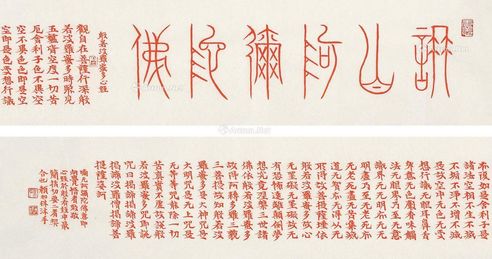 山阿彌陀佛
般若波羅蜜多心經
觀自在菩薩行深般
若波羅蜜多時照見
五蘊皆空度一切苦
厄舍利子色不異空
空不異色色即是空
空即是色受想行識
亦復如是舍利子是
諸法空相不生不滅
不垢不淨不增不減
是故空中无色无受
想行識无眼耳鼻舌
身意无色聲香味觸
法无眼界乃至无意
識界无无明亦无无
明盡乃至无老死亦
无老死盡无苦集滅
道无智亦无得以无
所得故菩提薩埵依
般若波羅蜜多故心
无罣礙无罣礙故无
有恐怖遠離顛倒夢
想究竟涅槃三世諸
佛依般若波羅蜜多
故得阿耨多羅三藐
三菩提故知般若波
羅蜜多是大神咒是
大明咒是无上咒是
无等等咒能除一切
苦真實不虛故說般
若波羅蜜多咒即說
咒曰揭諦揭諦波羅
揭諦波羅僧揭諦菩
提薩婆訶